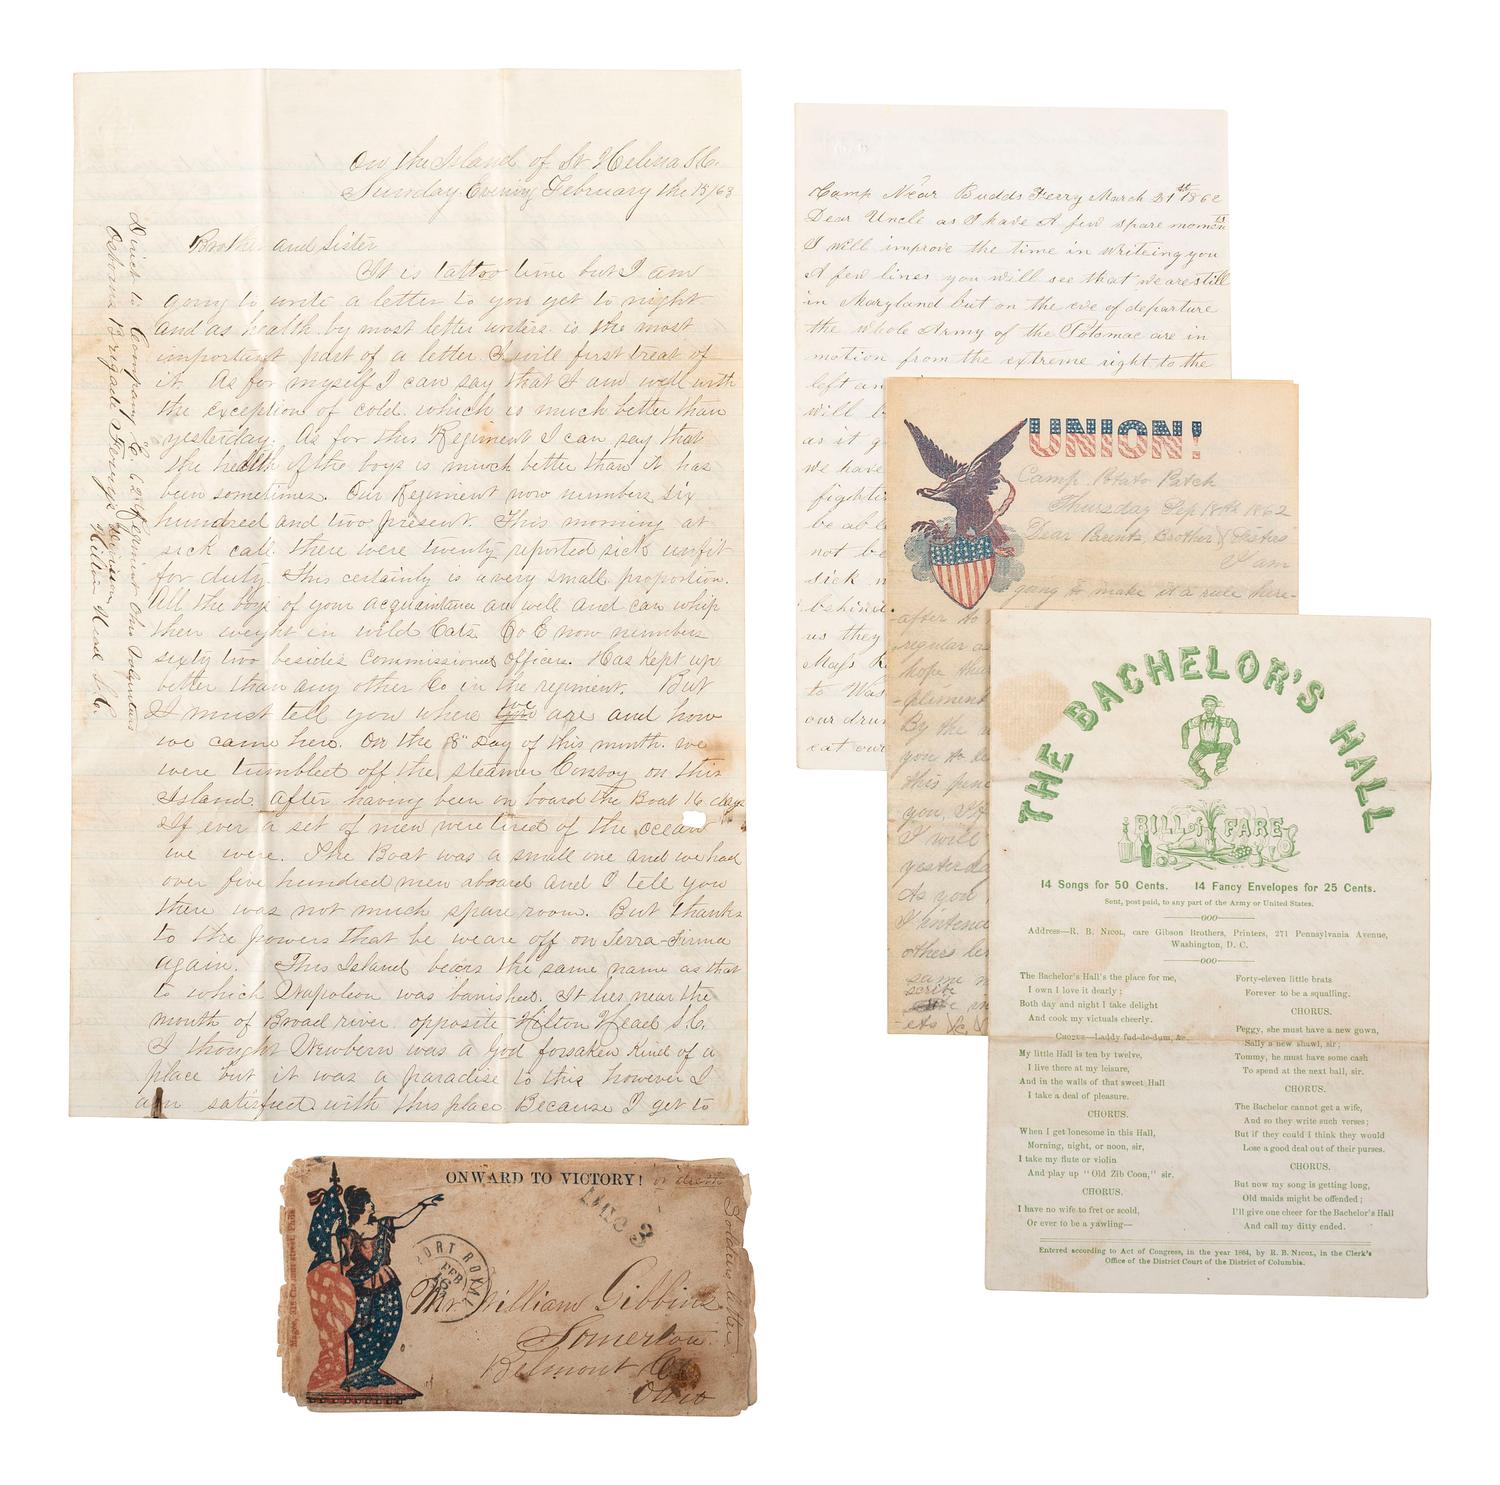 On the Island of St Helena S.C.
Sunday Evening February the 15/63
Brother and Sister
It is tattoo time but I am
going to write a letter to you yet to night
and as health by most letter writers is the most
important part of a letter I will first treat of
it. As for myself I can say that I am well with
the exception of cold which is much better than
yesterday. As for this Regiment I can say that
the health of the boys is much better than it has
been sometimes. Our Regiment now numbers six
hundred and two present. This morning at
sick call there were twenty reported sick unfit
for duty. This certainly is a very small proportion.
All the boys of your acquaintance are well and can whip
their weight in wild Cats. Co E now numbers
sixty two besides Commissioned officers. Has kept up
better than any other Co in the regiment. But
I must tell you where we are and how
we came here. On the 8th Day of this month we
were tumbled off the steamer Convoy on this
Island after having been on board the Boat 16 days
If ever a set of men were tired of the ocean
we were. The Boat was a small one and we had
over five hundred men aboard and I tell you
there was not much spare room. But thanks
to the powers that be we are off on Terra-Firma
again. This Island bears the same name as that
to which Napoleon was banished. It lies near the
mouth of Broad river opposite Hilton Head S.C.
I thought Newbern was a God forsaken kind of a
place but it was a paradise to this however I
am satisfied with this place Because I get to
Direct to Company E 62nd Regiment Ohio Volunteers
Osborns Brigade Ferrys Division
Hilton Head S.C.
Camp Near Budds Ferry March 21th 1862
Dear Uncle as I have A few spare moments
I will improve the time in writeing you
A few lines you will see that we are still
in Maryland but on the eve of departure
the whole Army of the Potomac are in
motion from the extreme right to the
left an
will b
as it g
we have
fighti
be abl
not be
sick
behind
us they
Mass R
to Was
our dru
eat our
UNION!
Camp Potato Patch
Thursday Sep 18th 1862
Dear Parents, Brother & Sisters
I am
going to make it a rule here-
after to
regular as
hope that
-pliment
By the
you to le
this penc
you, If
I will
yesterda
As you
I sentence
others let
same
scribe
&c. &
THE BACHELOR'S HALL
BILL OF FARE
14 Songs for 50 Cents. 14 Fancy Envelopes for 25 Cents.
Sent, post paid, to any part of the Army or United States.
ooo
Address—R. B. NICOL, care Gibson Brothers, Printers, 271 Pennsylvania Avenue,
Washington, D. C.
ooo
The Bachelor's Hall's the place for me,
I own I love it dearly;
Both day and night I take delight
And cook my victuals cheerly.
CHORUS—Laddy fud-de-dum, &c.
My little Hall is ten by twelve,
I live there at my leisure,
And in the walls of that sweet Hall
I take a deal of pleasure.
CHORUS.
When I get lonesome in this Hall,
Morning, night, or noon, sir,
I take my flute or violin
And play up "Old Zib Coon," sir.
CHORUS.
I have no wife to fret or scold,
Or ever to be a yawling—
Forty-eleven little brats
Forever to be a squalling.
CHORUS.
Peggy, she must have a new gown,
Sally a new shawl, sir;
Tommy, he must have some cash
To spend at the next ball, sir.
CHORUS.
The Bachelor cannot get a wife,
And so they write such verses;
But if they could I think they would
Lose a good deal out of their purses.
CHORUS.
But now my song is getting long,
Old maids might be offended;
I'll give one cheer for the Bachelor's Hall
And call my ditty ended.
Entered according to Act of Congress, in the year 1864, by R. B. NICOL, in the Clerk's
Office of the District Court of the District of Columbia.
ONWARD TO VICTORY! or death
Soldiers letter
DUE 3
PORT ROYAL
FEB
16
Mr. William Gibbins
Somerton
Belmont Co
Ohio